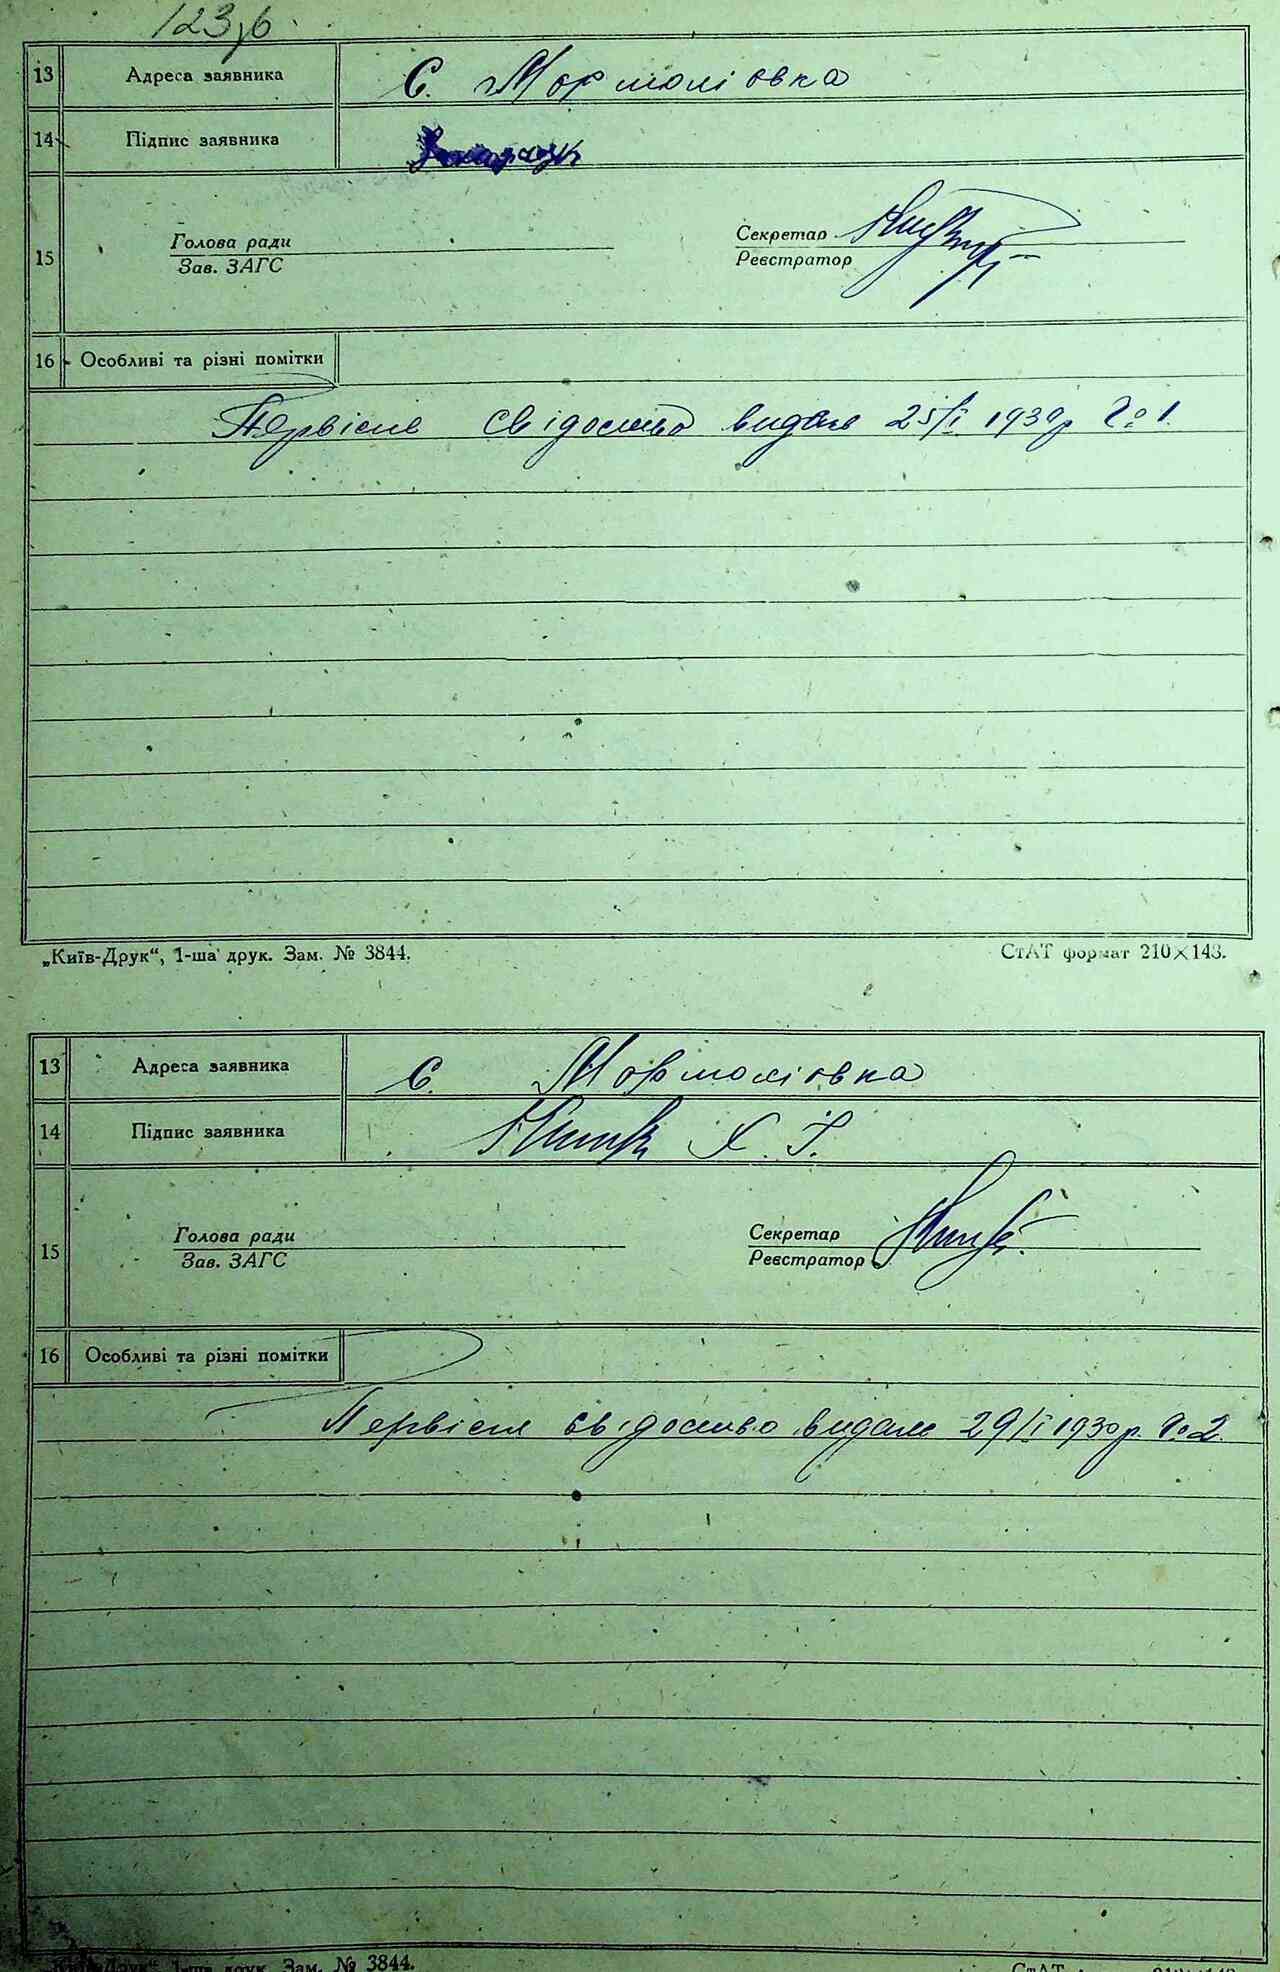 123,б
13 Адреса заявника с. Мормоліовка
14 Підпис заявника
Голова ради Секретар
15
Зав. ЗАГС Реєстратор
16 Особливі та різні помітки
Первісне свідоство видане 25/I 1930р № 1.
„Київ-Друк“, 1-ша друк. Зам. № 3844. СтАТ формат 210×143.
13 Адреса заявника с. Мормоліовка
14 Підпис заявника Х. І.
Голова ради Секретар
15
Зав. ЗАГС Реєстратор
16 Особливі та різні помітки
Первісне свідоство видане 29/I 1930р. № 2.
„Київ-Друк“, 1-ша друк. Зам. № 3844. СтАТ